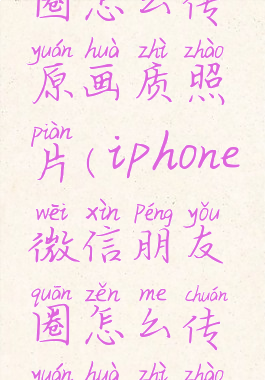 圈怎么传
yuán huà zhì zhào
原画质照
piàn
片(iphone
wēi xìn Péng yǒu
微信朋友
quān zěn me chuán
圈怎么传
yuán huà zhì zhào